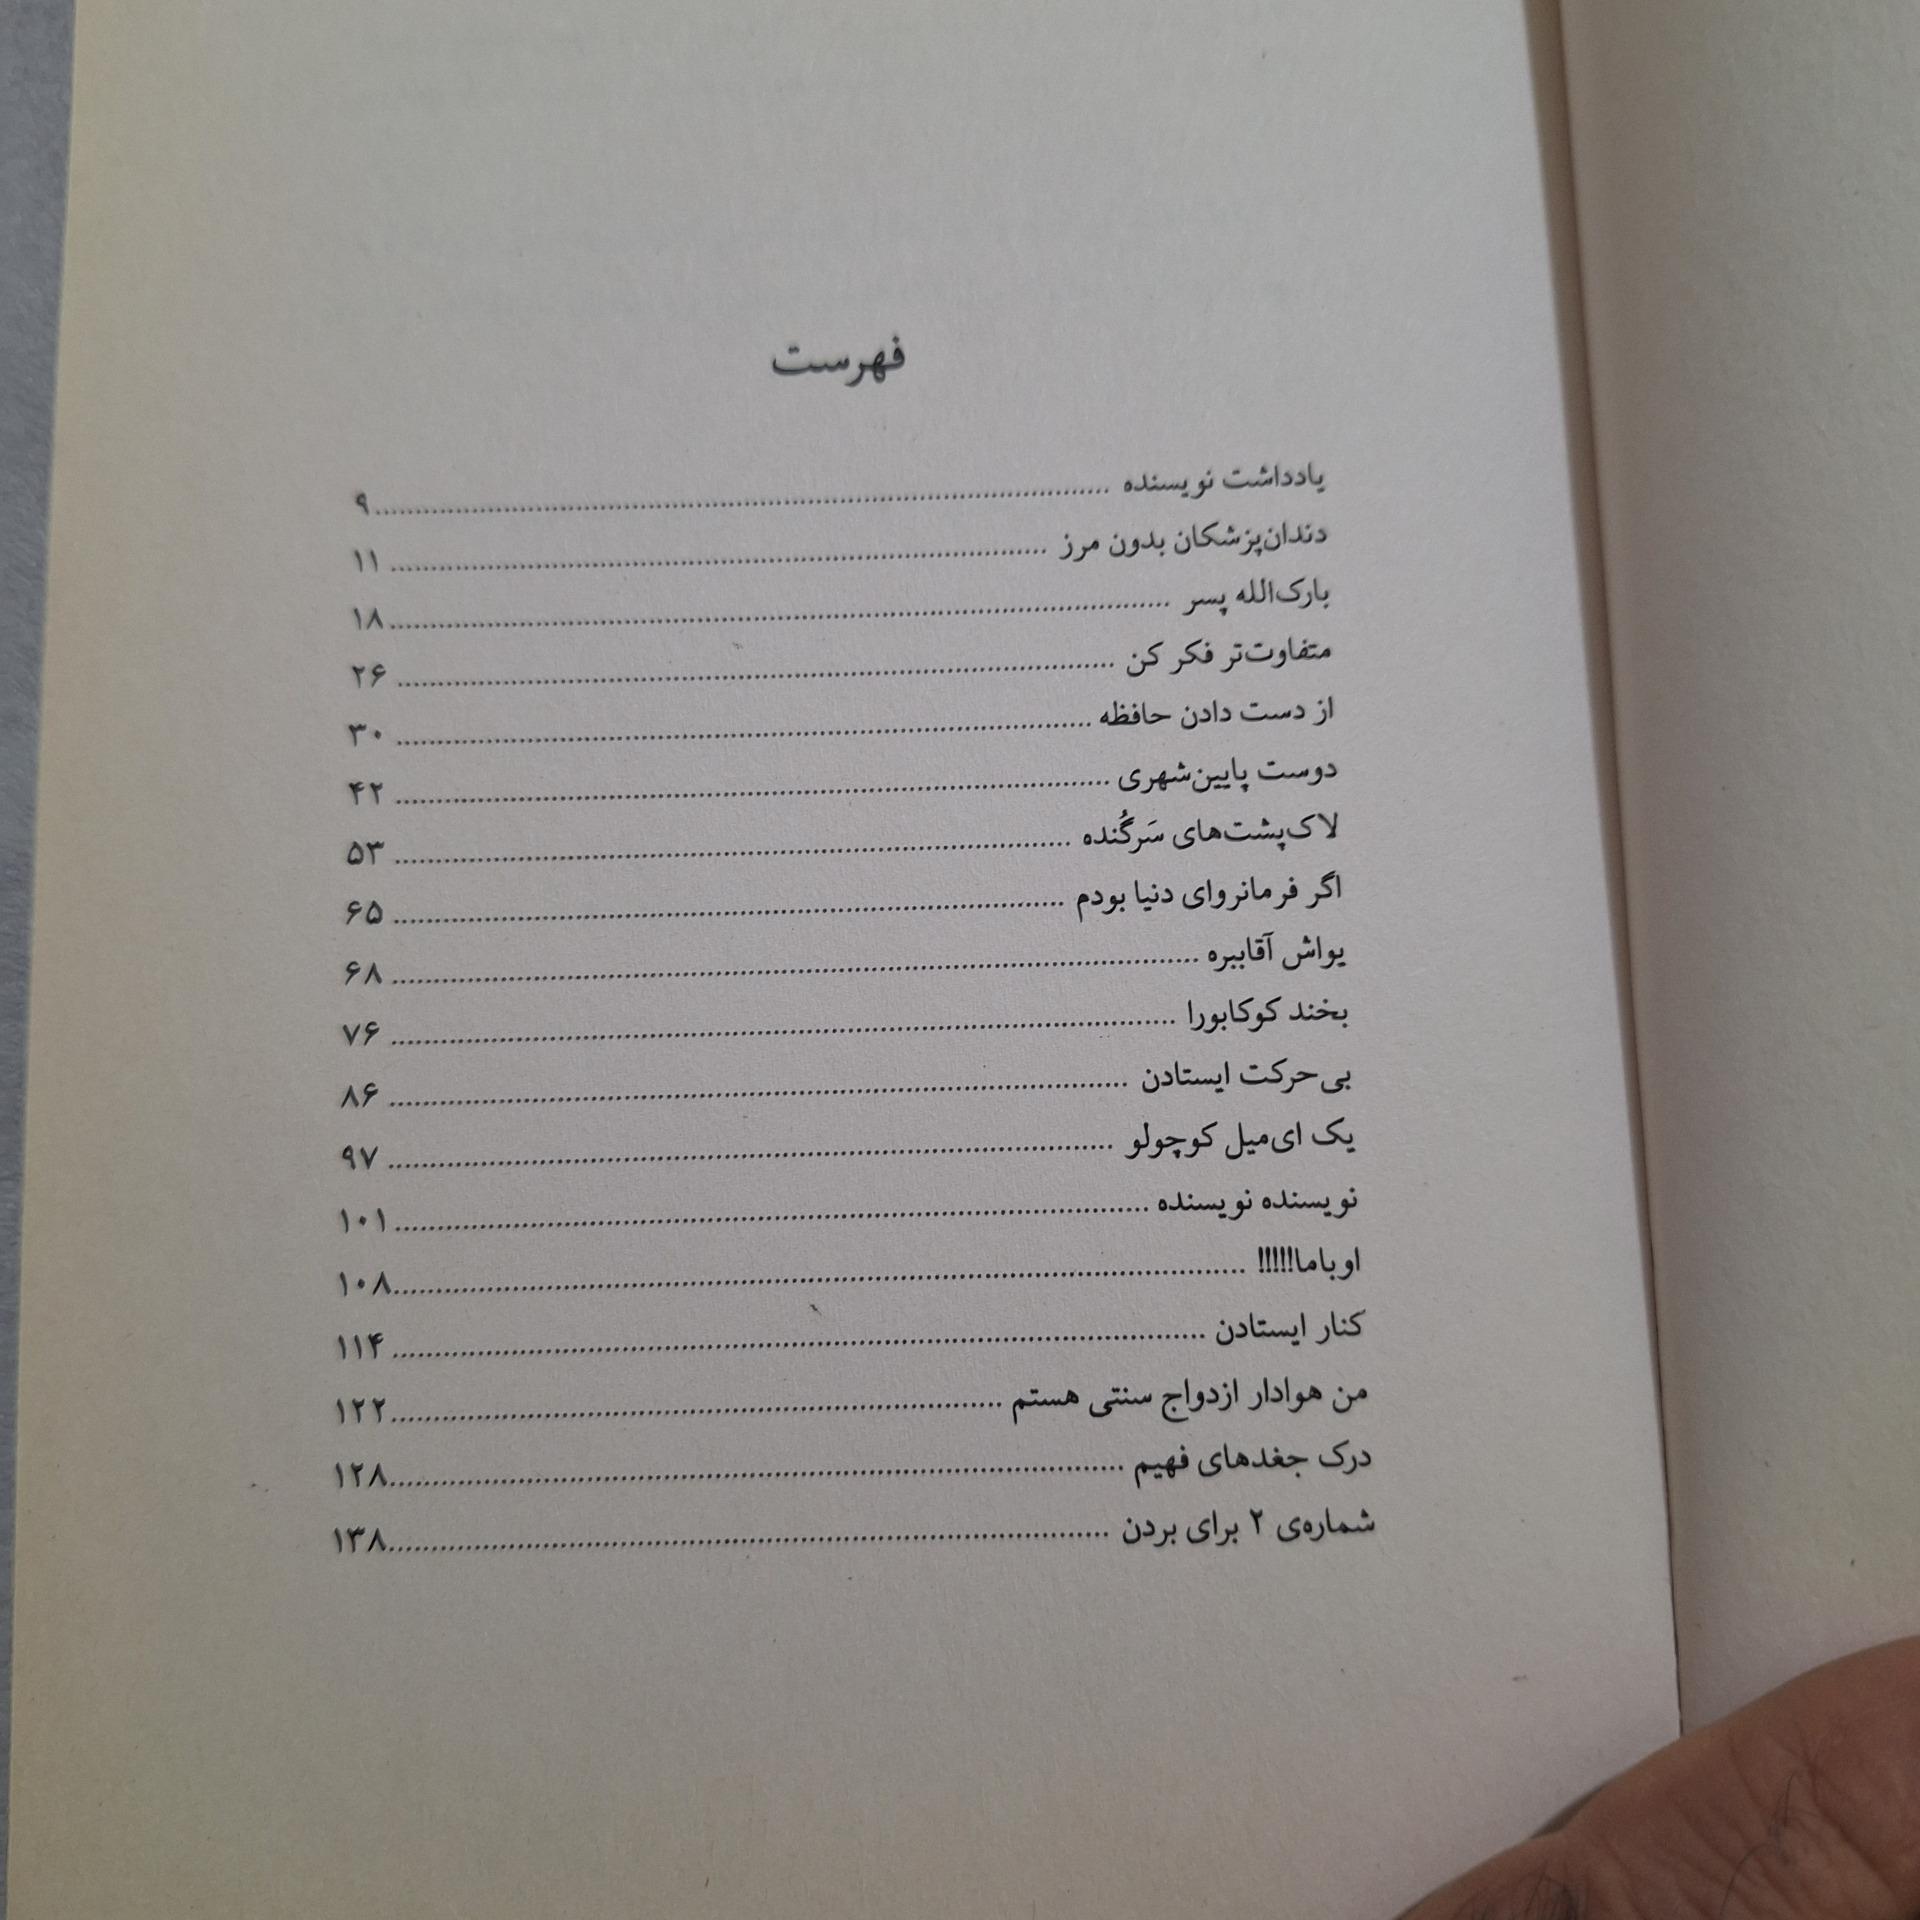 فهرست
یادداشت نویسنده ........ ۹
دندان‌پزشکان بدون مرز ........ ۱۱
بارک‌الله پسر ........ ۱۸
متفاوت‌تر فکر کن ........ ۲۶
از دست دادن حافظه ........ ۳۰
دوست پایین‌شهری ........ ۴۲
لاک‌پشت‌های سَرگُنده ........ ۵۳
اگر فرمانروای دنیا بودم ........ ۶۵
یواش آقاببره ........ ۶۸
بخند کوکابورا ........ ۷۶
بی‌حرکت ایستادن ........ ۸۶
یک ای‌میل کوچولو ........ ۹۷
نویسنده نویسنده ........ ۱۰۱
اوباما!!!!! ........ ۱۰۸
کنار ایستادن ........ ۱۱۴
من هوادار ازدواج سنتی هستم ........ ۱۲۲
درک جغدهای فهیم ........ ۱۲۸
شماره‌ی ۲ برای بردن ........ ۱۳۸